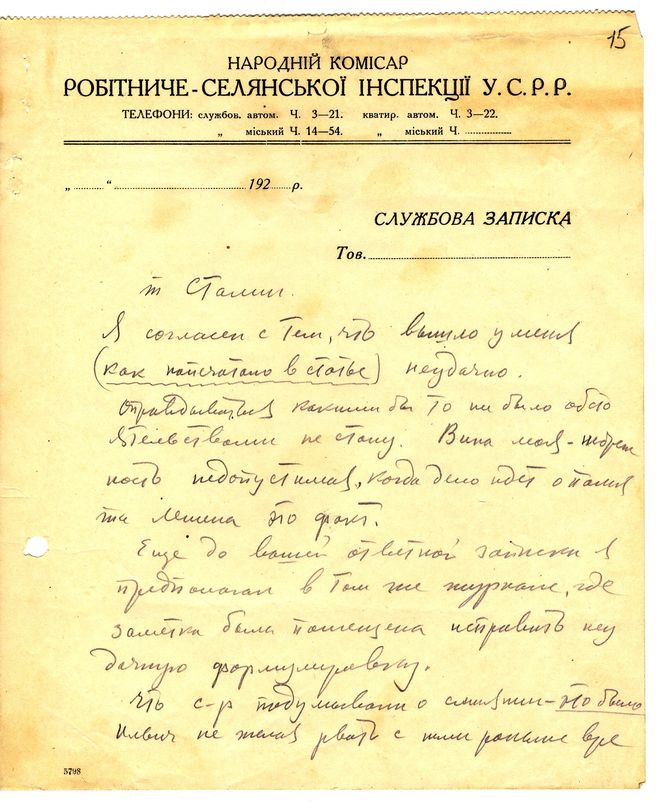 15
НАРОДНІЙ КОМІСАР
РОБІТНИЧЕ-СЕЛЯНСЬКОЇ ІНСПЕКЦІЇ У.С.Р.Р.
ТЕЛЕФОНИ: службов. автом. Ч. 3—21. кватир. автом. Ч. 3—22.
„ міський Ч. 14—54. „ міський Ч. ..............
„ .......... “ .............................. 192 ...... р.
СЛУЖБОВА ЗАПИСКА
Тов. ..............................
т Сталин.
Я согласен с тем, что вышло у меня
(как напечатано в статье) неудачно.
Оправдываться какими бы то ни было обсто
ятельствами не стану. Вина моя - небреж
ность недопустимая, когда дело идет о памя
ти Ленина это факт.
Еще до вашей ответной записки я
предполагал в том же журнале, где
заметка была помещена исправить неу
дачную формулировку.
Что с-р подумывали о слиянии - это было
Ильич не желал рвать с ними раньше вре
5798